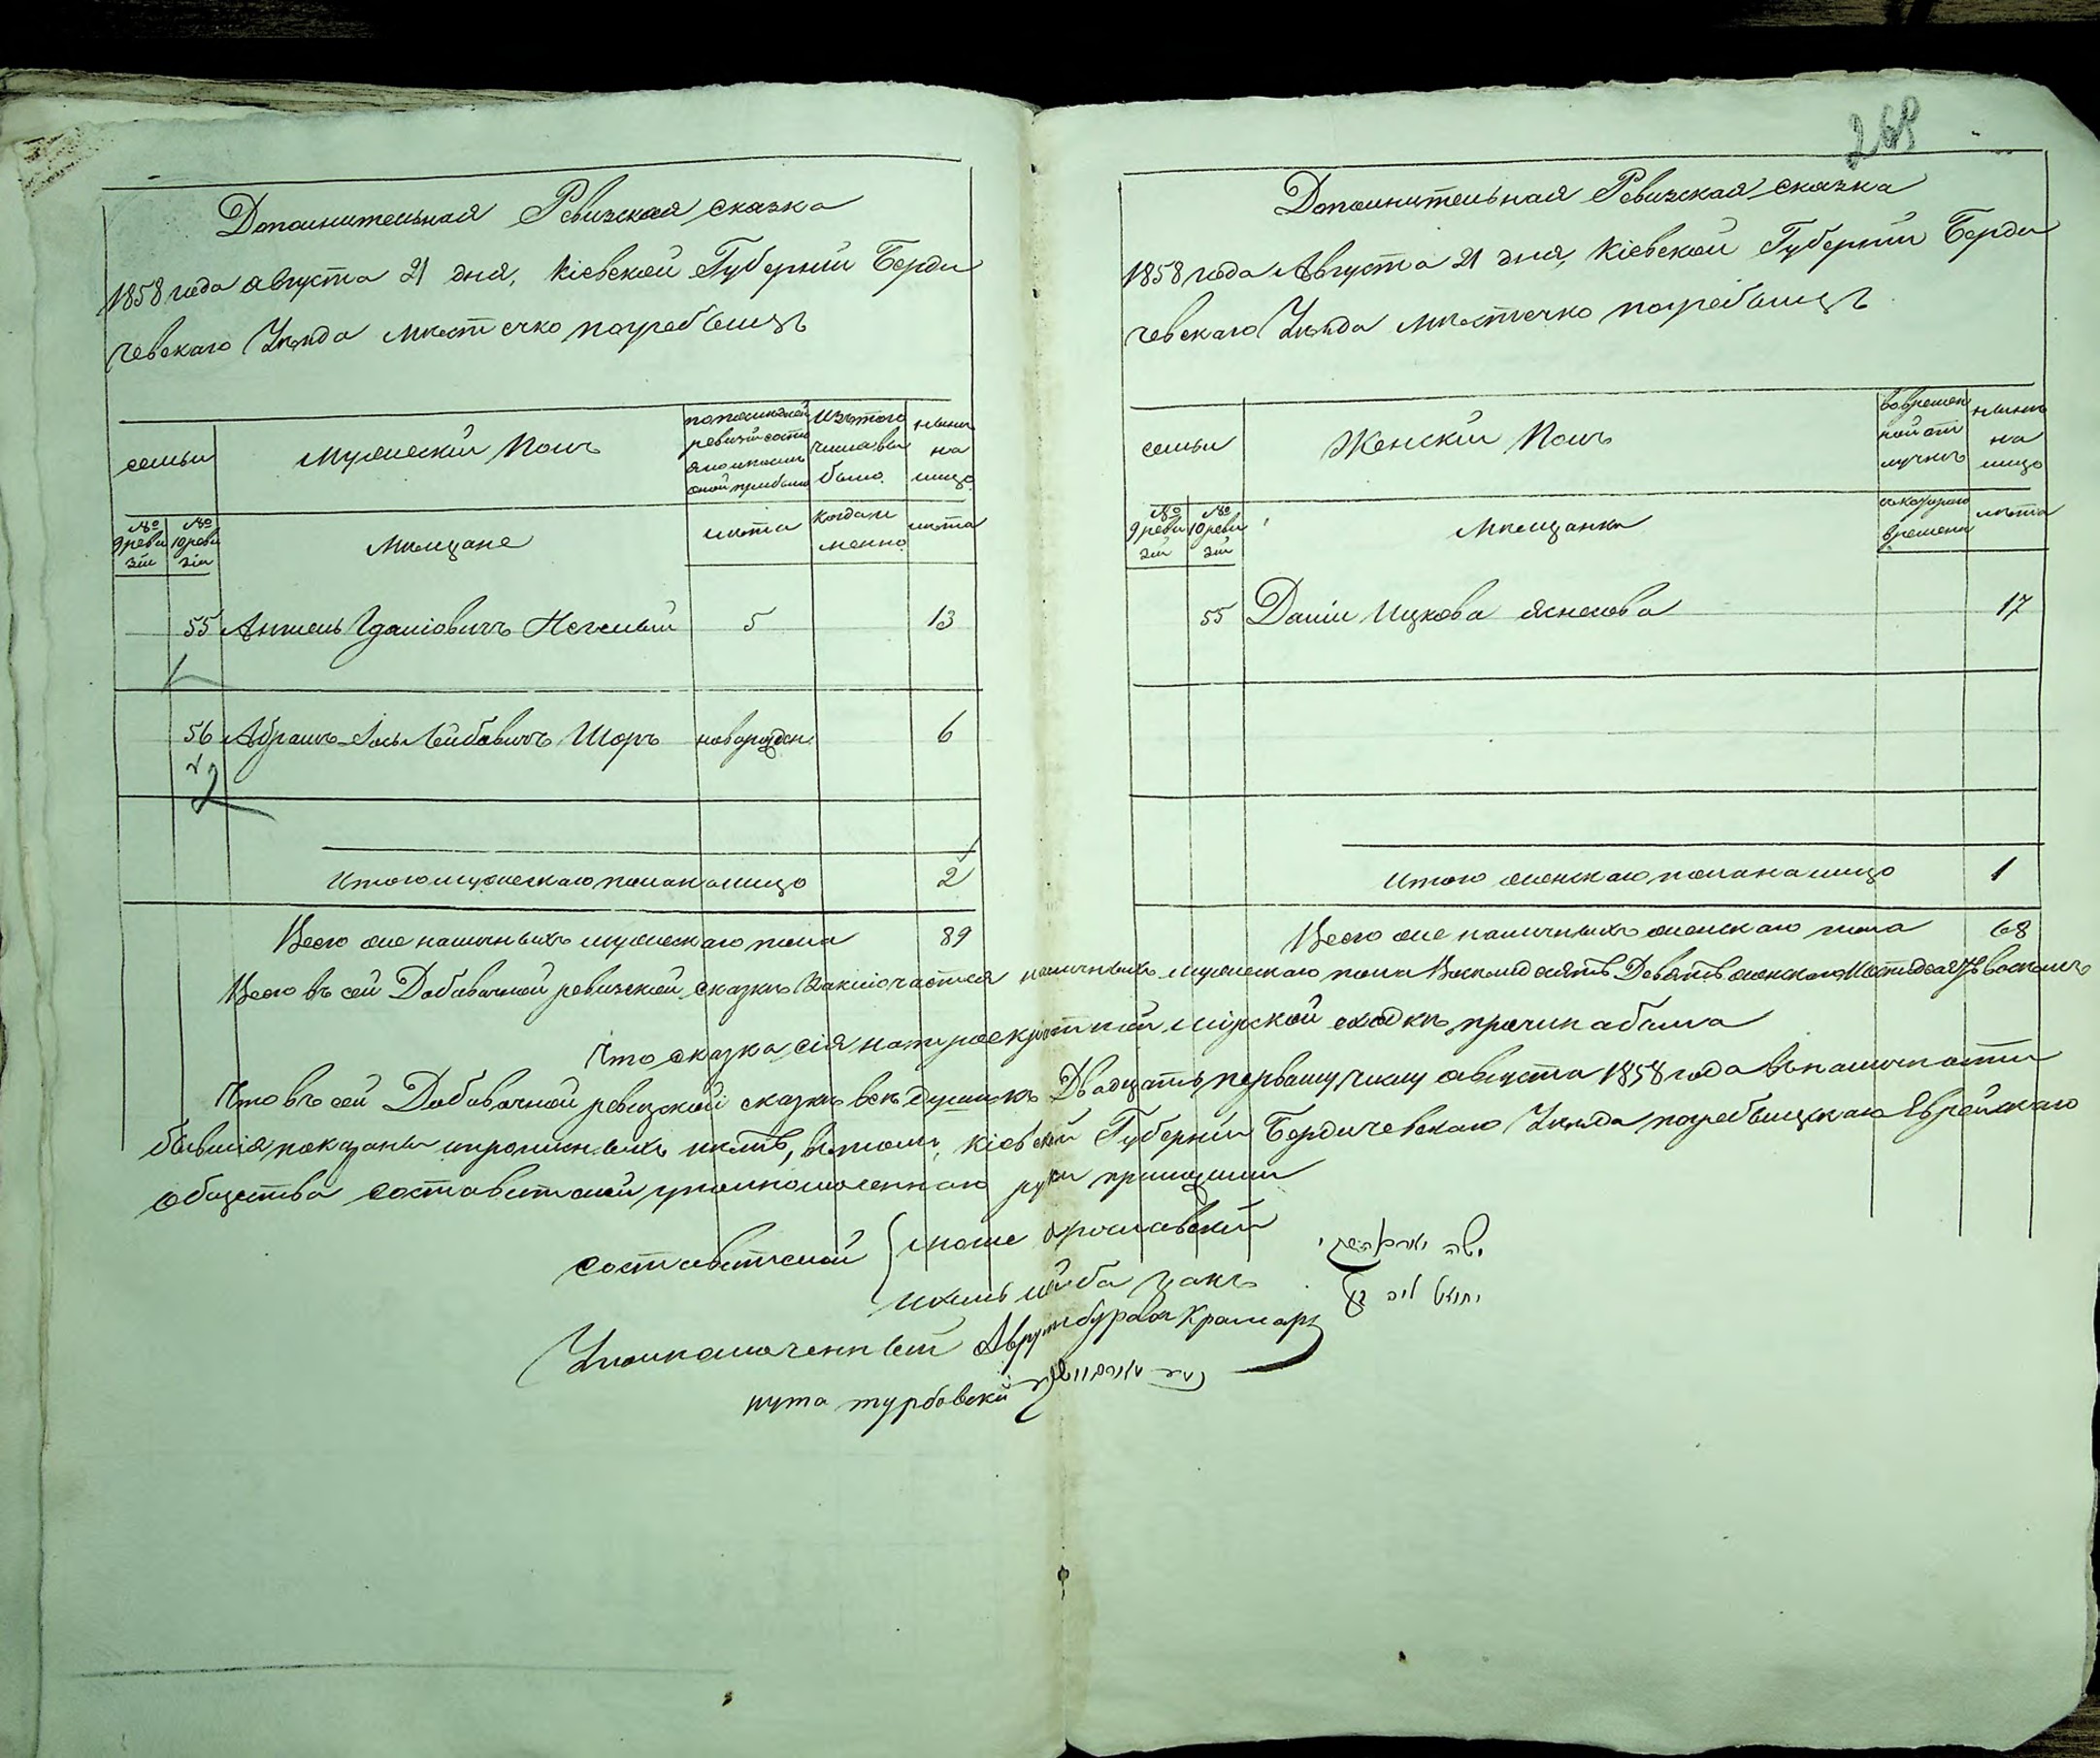 269
Дополнительная Ревизская сказка
1858 года августа 21 дня, Кіевской Губерніи Берди
чевскаго Уѣзда мѣстечко погребыщъ
семьи
Мужескій Полъ
по последней
ревизіи состо
яло и послѣ
оной прибыло
Изъ того
числа вы
было
нынѣ
на
лицо
№
9 реви
зіи
№
10 реви
зіи
Мѣщане
лѣта
когда и
менно
лѣта
55 Аншель Іданіовичъ 5 13
1
56 Абрамъ Лейбовичъ Шоръ новорожден. 6
2
Итого мужескаго пола на лицо 2
Всего же наличныхъ мужескаго пола 89
Дополнительная Ревизская сказка
1858 года Августа 21 дня, Кіевской Губерніи Берди
чевскаго Уѣзда мѣстечко погребыщъ
семьи
Женскій Полъ
во времен
ной от
лучкѣ
нынѣ
на
лицо
№
9 реви
зіи
№
10 реви
зіи
Мѣщанки
съ котораго
времени
лѣта
55 Ицкова жена 17
Итого женскаго пола на лицо 1
Всего же наличныхъ женскаго пола 68
Всего въ сей Добавочной ревизской сказкѣ заключается наличныхъ мужескаго пола Восемьдесятъ Девять женскаго Шестьдесятъ восемь
Что сказка сія на мірской сходкѣ прочитана была
Что въ сей Добавочной ревизской сказкѣ всѣ души къ Двадцать первому числу августа 1858 года въ наличности
бывшія показаны и пропускныхъ нѣтъ, въ томъ, Кіевской Губерніи Бердичевскаго Уѣзда погребыщскаго Еврейскаго
общества составители и уполномоченнаго руки приложили
составители
мошко ярославскій
ихиль лейба кацъ
יחיאל ליב כץ
Уполномоченный Аврумъ бурова Крамаръ
нута турбовскій